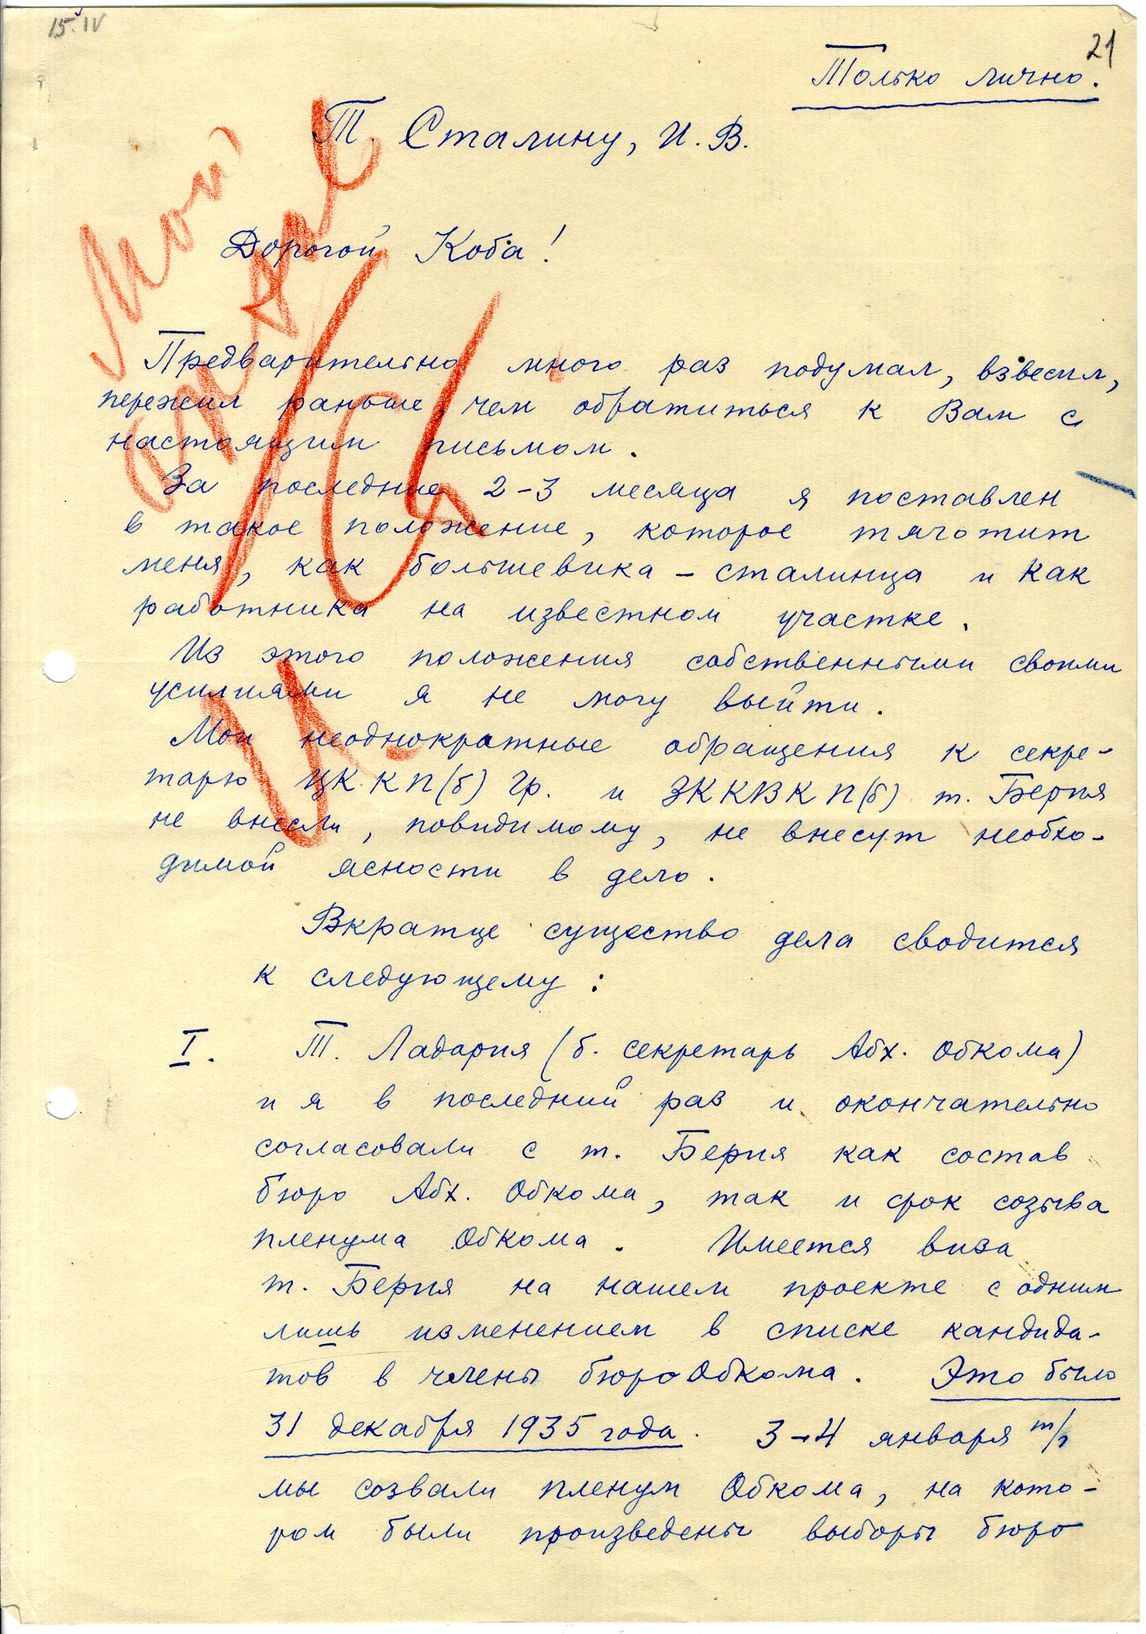 15.IV
21
Только лично.
Т. Сталину, И. В.
Мой
архив
Дорогой Коба!
Предварительно много раз подумал, взвесил,
пережил раньше, чем обратиться к Вам с
настоящим письмом.
За последние 2-3 месяца я поставлен
в такое положение, которое тяготит
меня, как большевика - сталинца и как
работника на известном участке.
Из этого положения собственными своими
усилиями я не могу выйти.
Мои неоднократные обращения к секре-
тарю ЦК КП(б) Гр. и ЗККВКП(б) т. Берия
не внесли, повидимому, не внесут необхо-
димой ясности в дело.
Вкратце существо дела сводится
к следующему:
I. Т. Ладария (б. секретарь Абх. Обкома)
и я в последний раз и окончательно
согласовали с т. Берия как состав
бюро Абх. Обкома, так и срок созыва
пленума Обкома. Имеется виза
т. Берия на нашем проекте с одним
лишь изменением в списке кандида-
тов в члены бюро Обкома. Это было
31 декабря 1935 года. 3-4 января т/г
мы созвали пленум Обкома, на кото-
ром были произведены выборы бюро